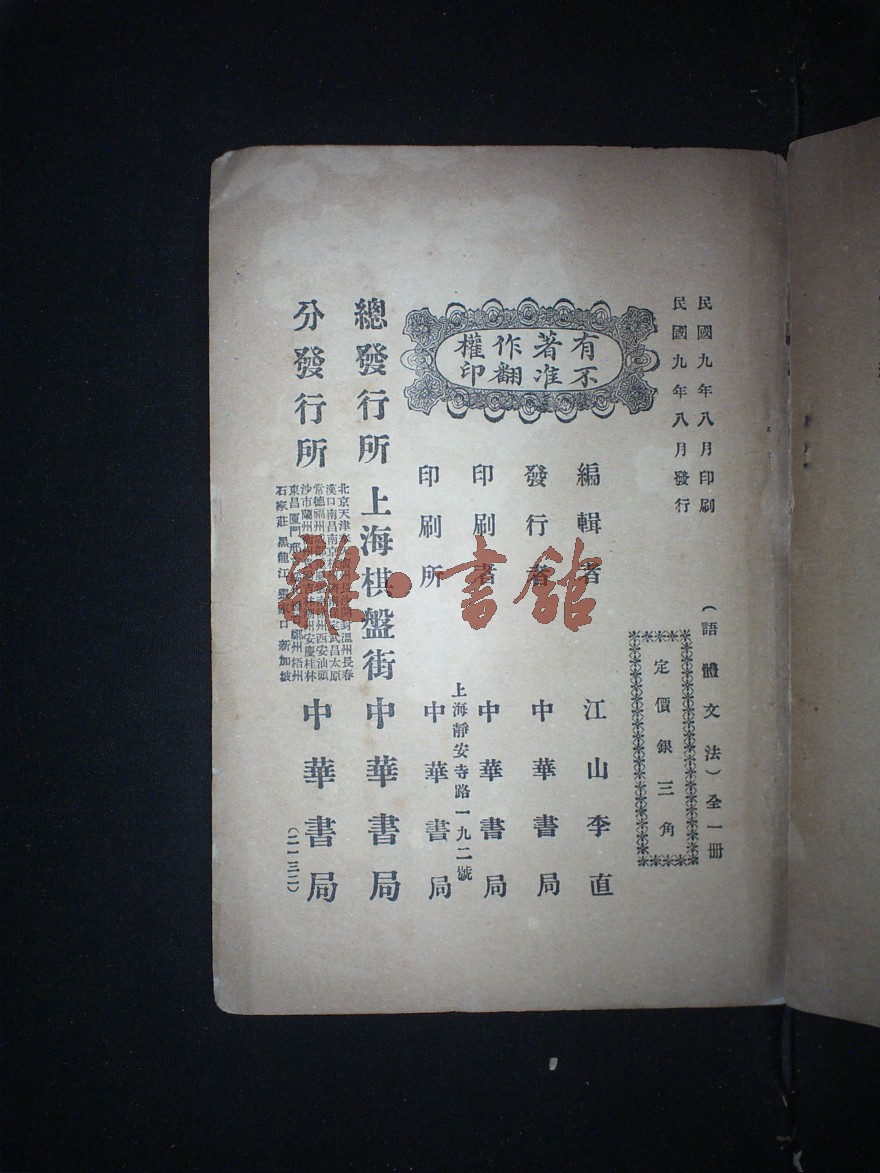 民國九年八月印刷
民國九年八月發行
（語體文法）全一册
定價銀三角
有著作權
不准翻印
編輯者 江山李直
發行者 中華書局
印刷者 中華書局
上海靜安寺路一九二號
印刷所 中華書局
總發行所 上海棋盤街 中華書局
分發行所
北京天津 溫州長春
漢口南昌南京 武昌太原
常德福州成都 州西安汕頭
沙市蘭州 州安慶桂林
東昌廈門 鄭州梧州
石家莊 黑龍江 口 新加坡
中華書局
（二一三二）
雜·書館